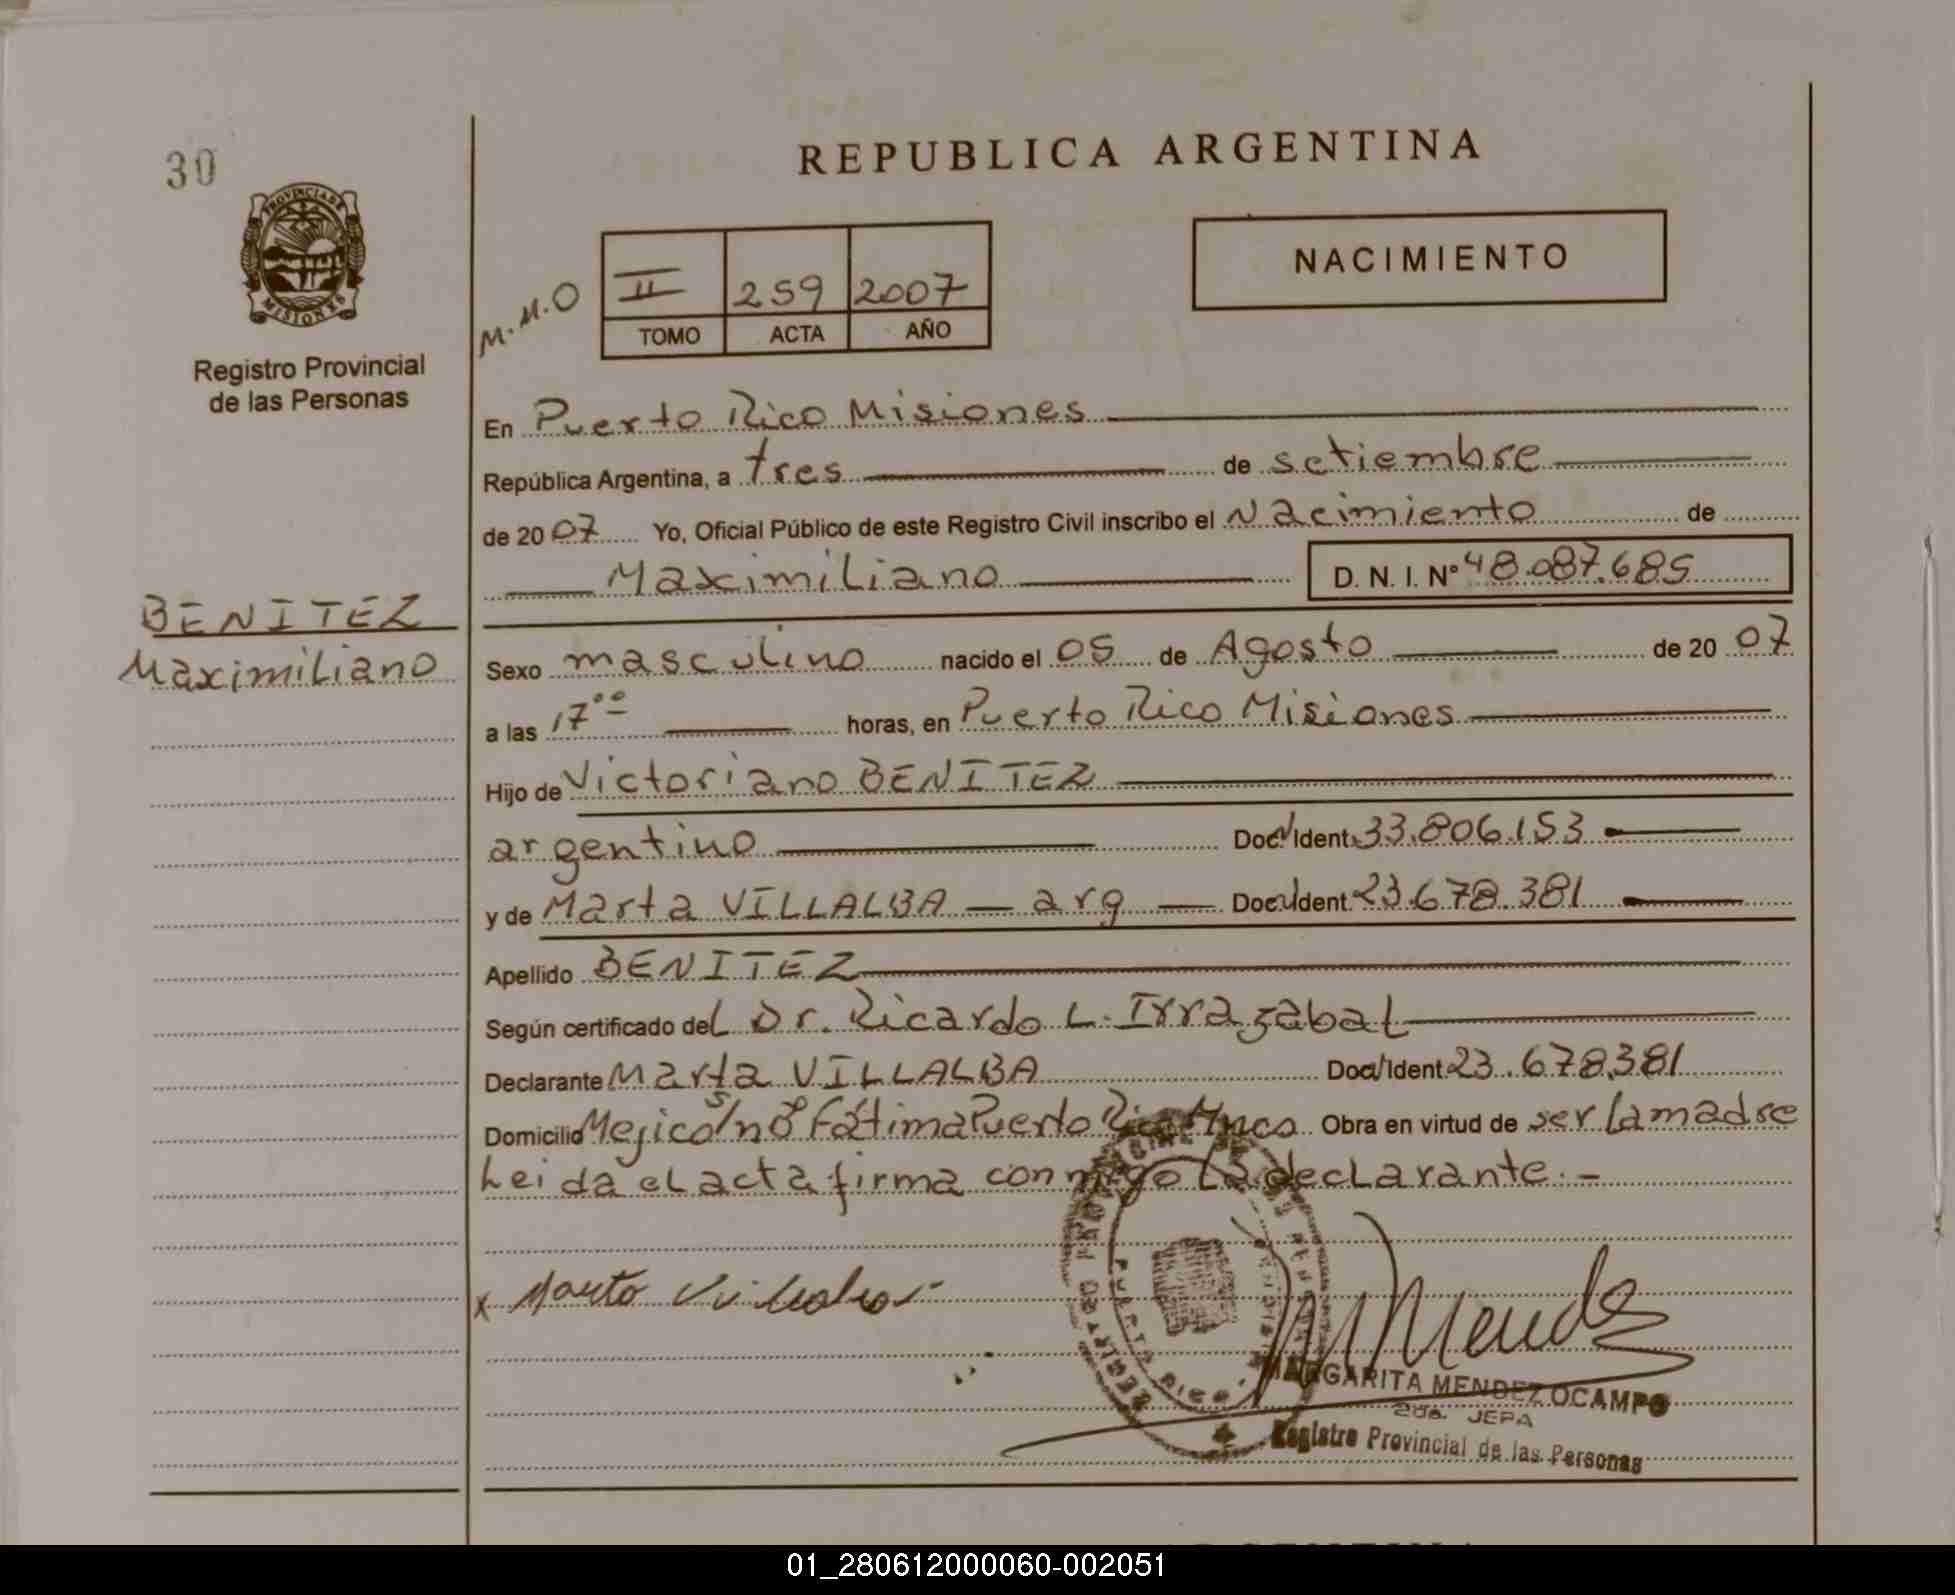 30
REPUBLICA ARGENTINA
PROVINCIA DE
MISIONES
Registro Provincial
de las Personas
M.M.O
II 259 2007
TOMO ACTA AÑO
NACIMIENTO
En Puerto Rico Misiones
República Argentina, a tres de setiembre
de 20 07 Yo, Oficial Público de este Registro Civil inscribo el Nacimiento de
Maximiliano D. N. I. Nº 48.087.685
BENITEZ
Maximiliano
Sexo masculino nacido el 05 de Agosto de 20 07
a las 17 ºº horas, en Puerto Rico Misiones
Hijo de Victoriano BENITEZ
argentino Doc. Ident. 33.806.153
y de Marta VILLALBA — arg — Doc. Ident. 23.678.381
Apellido BENITEZ
Según certificado del Dr. Ricardo L. Irrazabal
Declarante Marta VILLALBA Doc. Ident. 23.678.381
Domicilio Mejico s/nº Fátima Puerto Rico Mnes Obra en virtud de ser la madre
Leida el acta firma conmigo la declarante.-
x Marta Villalba
M Mendez
PUERTO RICO
MARGARITA MENDEZ OCAMPO
2da. JEFA
Registro Provincial de las Personas
01_280612000060-002051